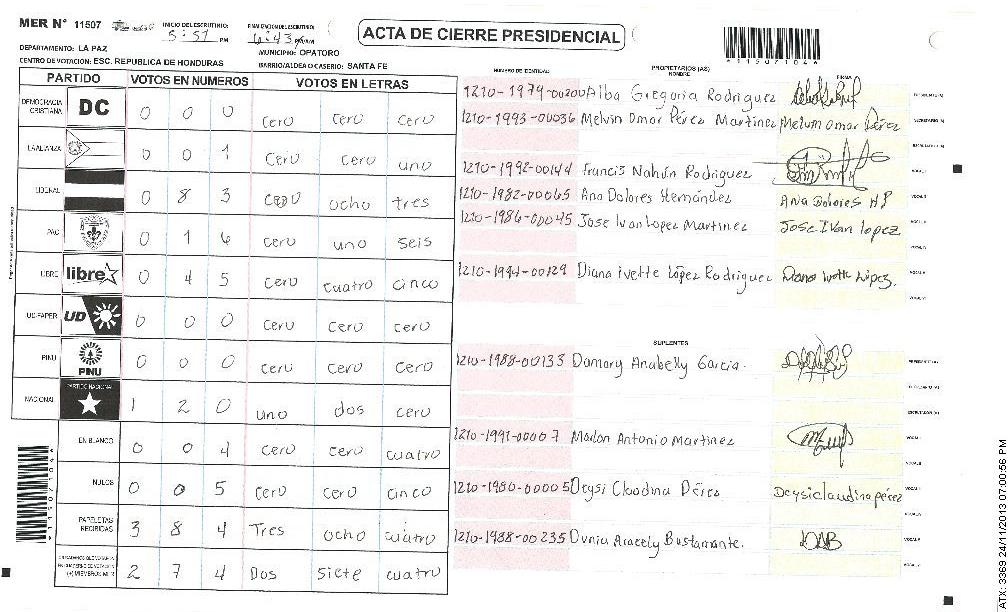 MER N° 11507
INICIO DEL ESCRUTINIO: 5:57 PM
FINALIZACION DEL ESCRUTINIO: 6:43
ACTA DE CIERRE PRESIDENCIAL
DEPARTAMENTO: LA PAZ
MUNICIPIO: OPATORO
CENTRO DE VOTACION: ESC. REPUBLICA DE HONDURAS
BARRIO/ALDEA O CASERIO: SANTA FE
*11507104*
PARTIDO VOTOS EN NUMEROS VOTOS EN LETRAS
DEMOCRACIA CRISTIANA DC 0 0 0 cero cero cero
LA ALIANZA 0 0 1 cero cero uno
LIBERAL 0 8 3 cero ocho tres
PAC 0 1 6 cero uno seis
LIBRE libre 0 4 5 cero cuatro cinco
UD-FAPER UD 0 0 0 cero cero cero
PINU PINU 0 0 0 cero cero cero
NACIONAL PARTIDO NACIONAL 1 2 0 uno dos cero
EN BLANCO 0 0 4 cero cero cuatro
NULOS 0 0 5 cero cero cinco
PAPELETAS RECIBIDAS 3 8 4 Tres ocho cuatro
2 7 4 Dos siete cuatro
*11507104*
NUMERO DE IDENTIDAD PROPIETARIOS (AS) NOMBRE FIRMA
1210-1979-00200 Alba Gregoria Rodriguez
1210-1993-00036 Melvin Omar Pérez Martinez Melvin omar Pérez
1210-1992-00144 Francis Nahún Rodriguez
1210-1982-00065 Ana Dolores Hernández Ana Dolores HP
1210-1986-00045 Jose Ivan Lopez Martinez Jose Ivan lopez
1210-1994-00129 Diana ivette López Rodriguez Diana Ivette López.
SUPLENTES
1210-1988-00133 Damary Anabelly Garcia.
1210-1991-00007 Marlon Antonio Martinez
1210-1980-00005 Deysi Claudina Pérez Deysi claudina pérez
1210-1988-00235 Dunia Aracely Bustamante. DAB
ATX: 3369 24/11/2013 07:00:56 PM